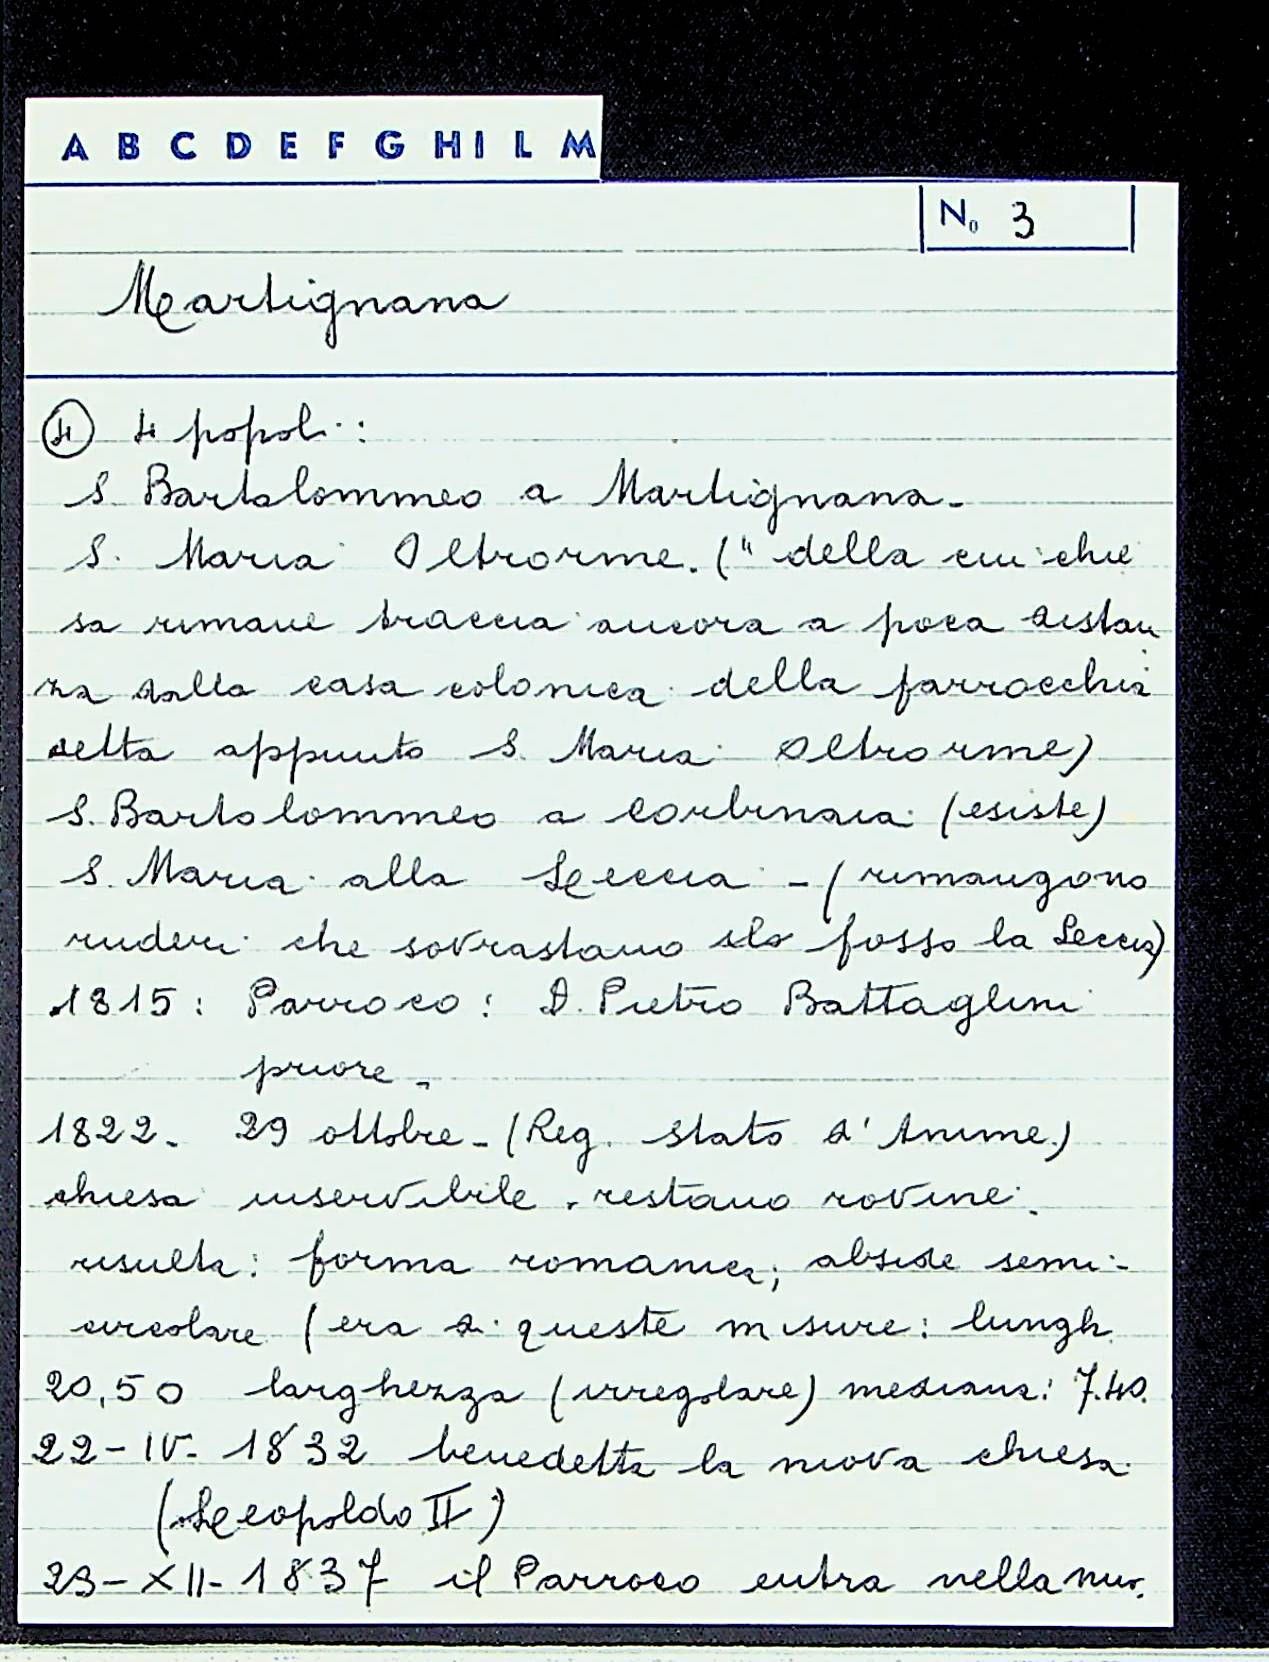 A B C D E F G H I L M
N. 3
Martignana
④ 4 popoli:
S. Bartolommeo a Martignana.
S. Maria Oltrorme. ("della cui chie
sa rimane traccia ancora a poca distan
za dalla casa colonica della parrocchia
detta appunto S. Maria Oltrorme)
S. Bartolommeo a Corbinaia (esiste)
S. Maria alla Leccia - (rimangono
ruderi che sovrastano fosso la Leccia)
1815: Parroco: D. Pietro Battaglini
priore.
1822. 29 ottobre - (Reg. stato d'Anime.)
chiesa inservibile. restano rovine.
risulta: forma romanica; abside semi-
circolare (era di queste misure: lungh.
20,50 larghezza (irregolare) mediana: 7.40.
22-IV-1832 benedetta la nuova chiesa
(Leopoldo II)
23-XII-1837 il Parroco entra nella nuo.